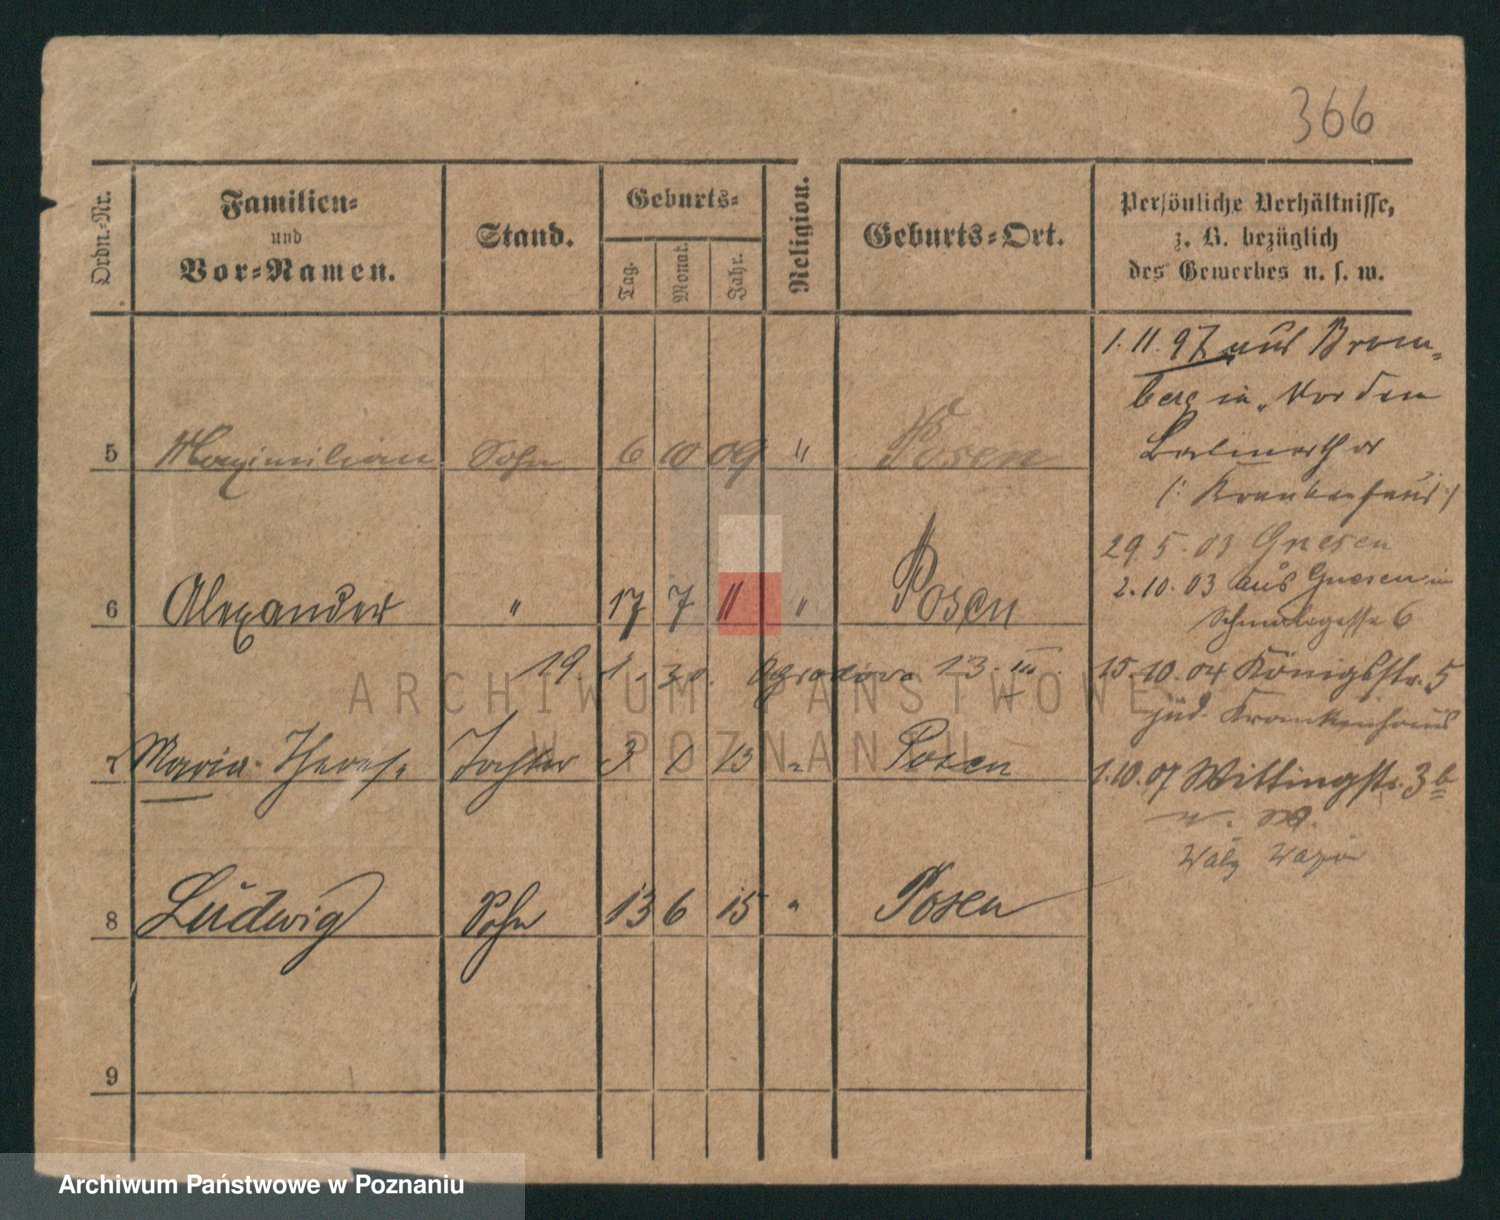 366
Ordn.-Nr.
Familien-
und
Vor-Namen.
Stand.
Geburts-
Tag.
Monat.
Jahr.
Religion.
Geburts-Ort.
Persönliche Verhältnisse,
z. B. bezüglich
des Gewerbes u. s. w.
1. 11. 97 aus Brom-
berg in „Vor dem
Berlinerthor
(: Krankenhaus :)
5 Maximilian Sohn 6 10 09 " Posen
29. 5. 03 Gnesen
2. 10. 03 aus Gnesen in
6 Alexander " 17 7 11 " Posen
6
19. 1. 30. Ogrodowa 13. III.
15. 10. 04 Königsstr. 5
jüd. Krankenhaus
7 Maria-Therese Tochter 3 1 13 " Posen
1. 10. 07 Wittingstr. 3b
8 Ludwig Sohn 13 6 15 " Posen
9
ARCHIWUM PAŃSTWOWE
W POZNANIU
Archiwum Państwowe w Poznaniu